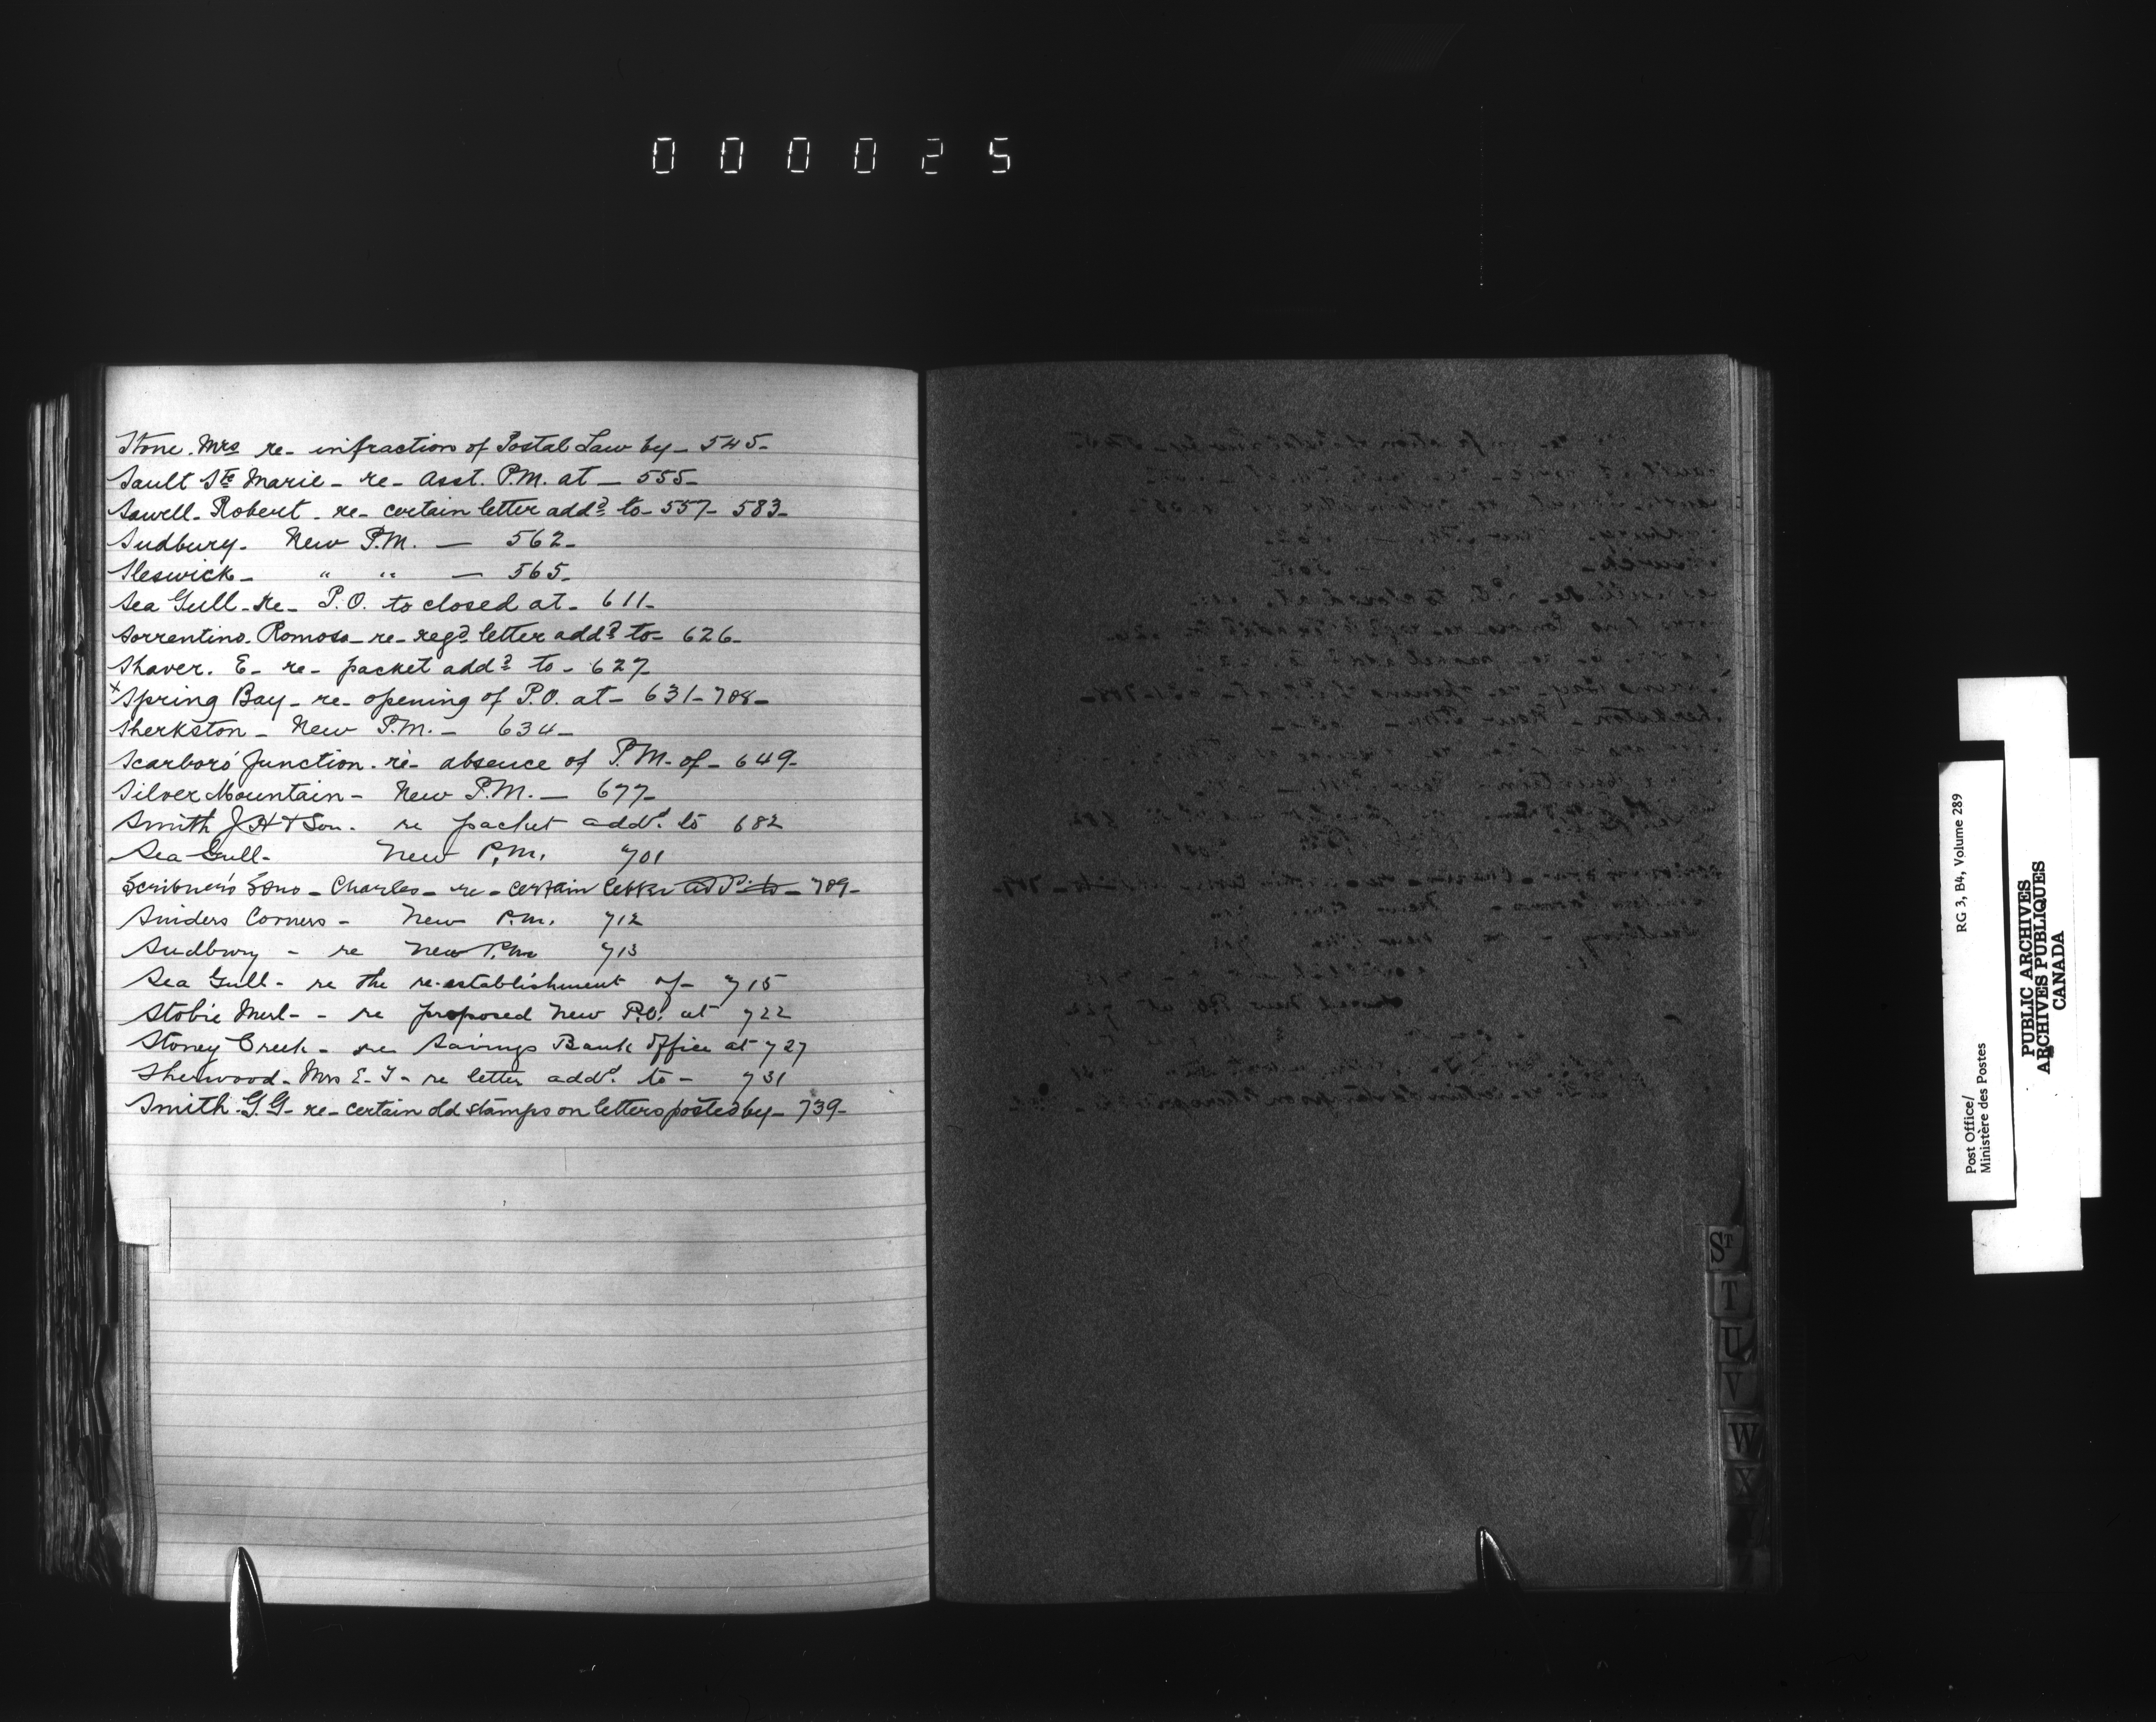 000025
Stone. Mrs re- infraction of Postal Law by- 545-
Sault Ste Marie- re- Asst. P.M. at - 555-
Sawell- Robert- re- certain letter addd to- 557- 583-
Sudbury. New P.M. - 562-
Sleswick- " " - 565-
Sea Gull- Re- P.O. to closed at- 611-
Sorrentino. Romoso- re- regd letter addd to- 626-
Shaver. E- re- packet addd to- 627-
x Spring Bay- re- opening of P.O. at- 631- 708-
Sherkston- New P.M.- 634-
Scarboro' Junction- re- absence of P.M. of- 649-
Silver Mountain- New P.M.- 677-
Smith J H & Son. re packet addd to 682
Sea Gull- New P.M. 701
Scribner's Sons- Charles- re- certain letter addd to- 709-
Sniders Corners- New P.M. 712
Sudbury - re New P.M. 713
Sea Gull- re the re-establishment of- 715
Stobie - re proposed New P.O. at 722
Stoney Creek- re Savings Bank Office at 727
Sherwood- Mrs E. - re letter addd to- 731
Smith. G.G- re- certain old stamps on letters posted by- 739-
ST
T
U
V
W
X
Post Office/
Ministère des Postes
RG 3, B4, Volume 289
PUBLIC ARCHIVES
ARCHIVES PUBLIQUES
CANADA